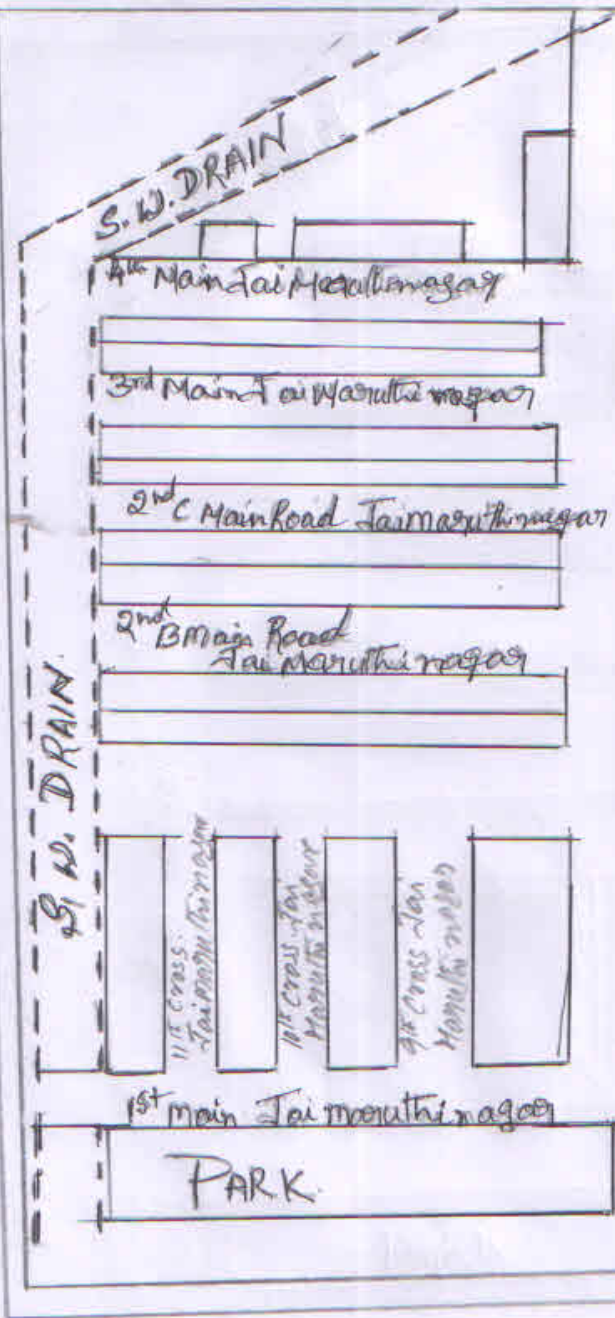 S.W. DRAIN
4th Main Jai Maruthinagar
3rd Main Jai Maruthi nagar
2nd C Main Road Jaimaruthinagar
2nd B Main Road
Jai Maruthi nagar
S. W. DRAIN
11th Cross
Jaimaruthinagar
10th Cross Jai
Maruthi nagar
9th Cross Jai
Maruthi nagar
1st main Jai maruthi nagar
PARK.